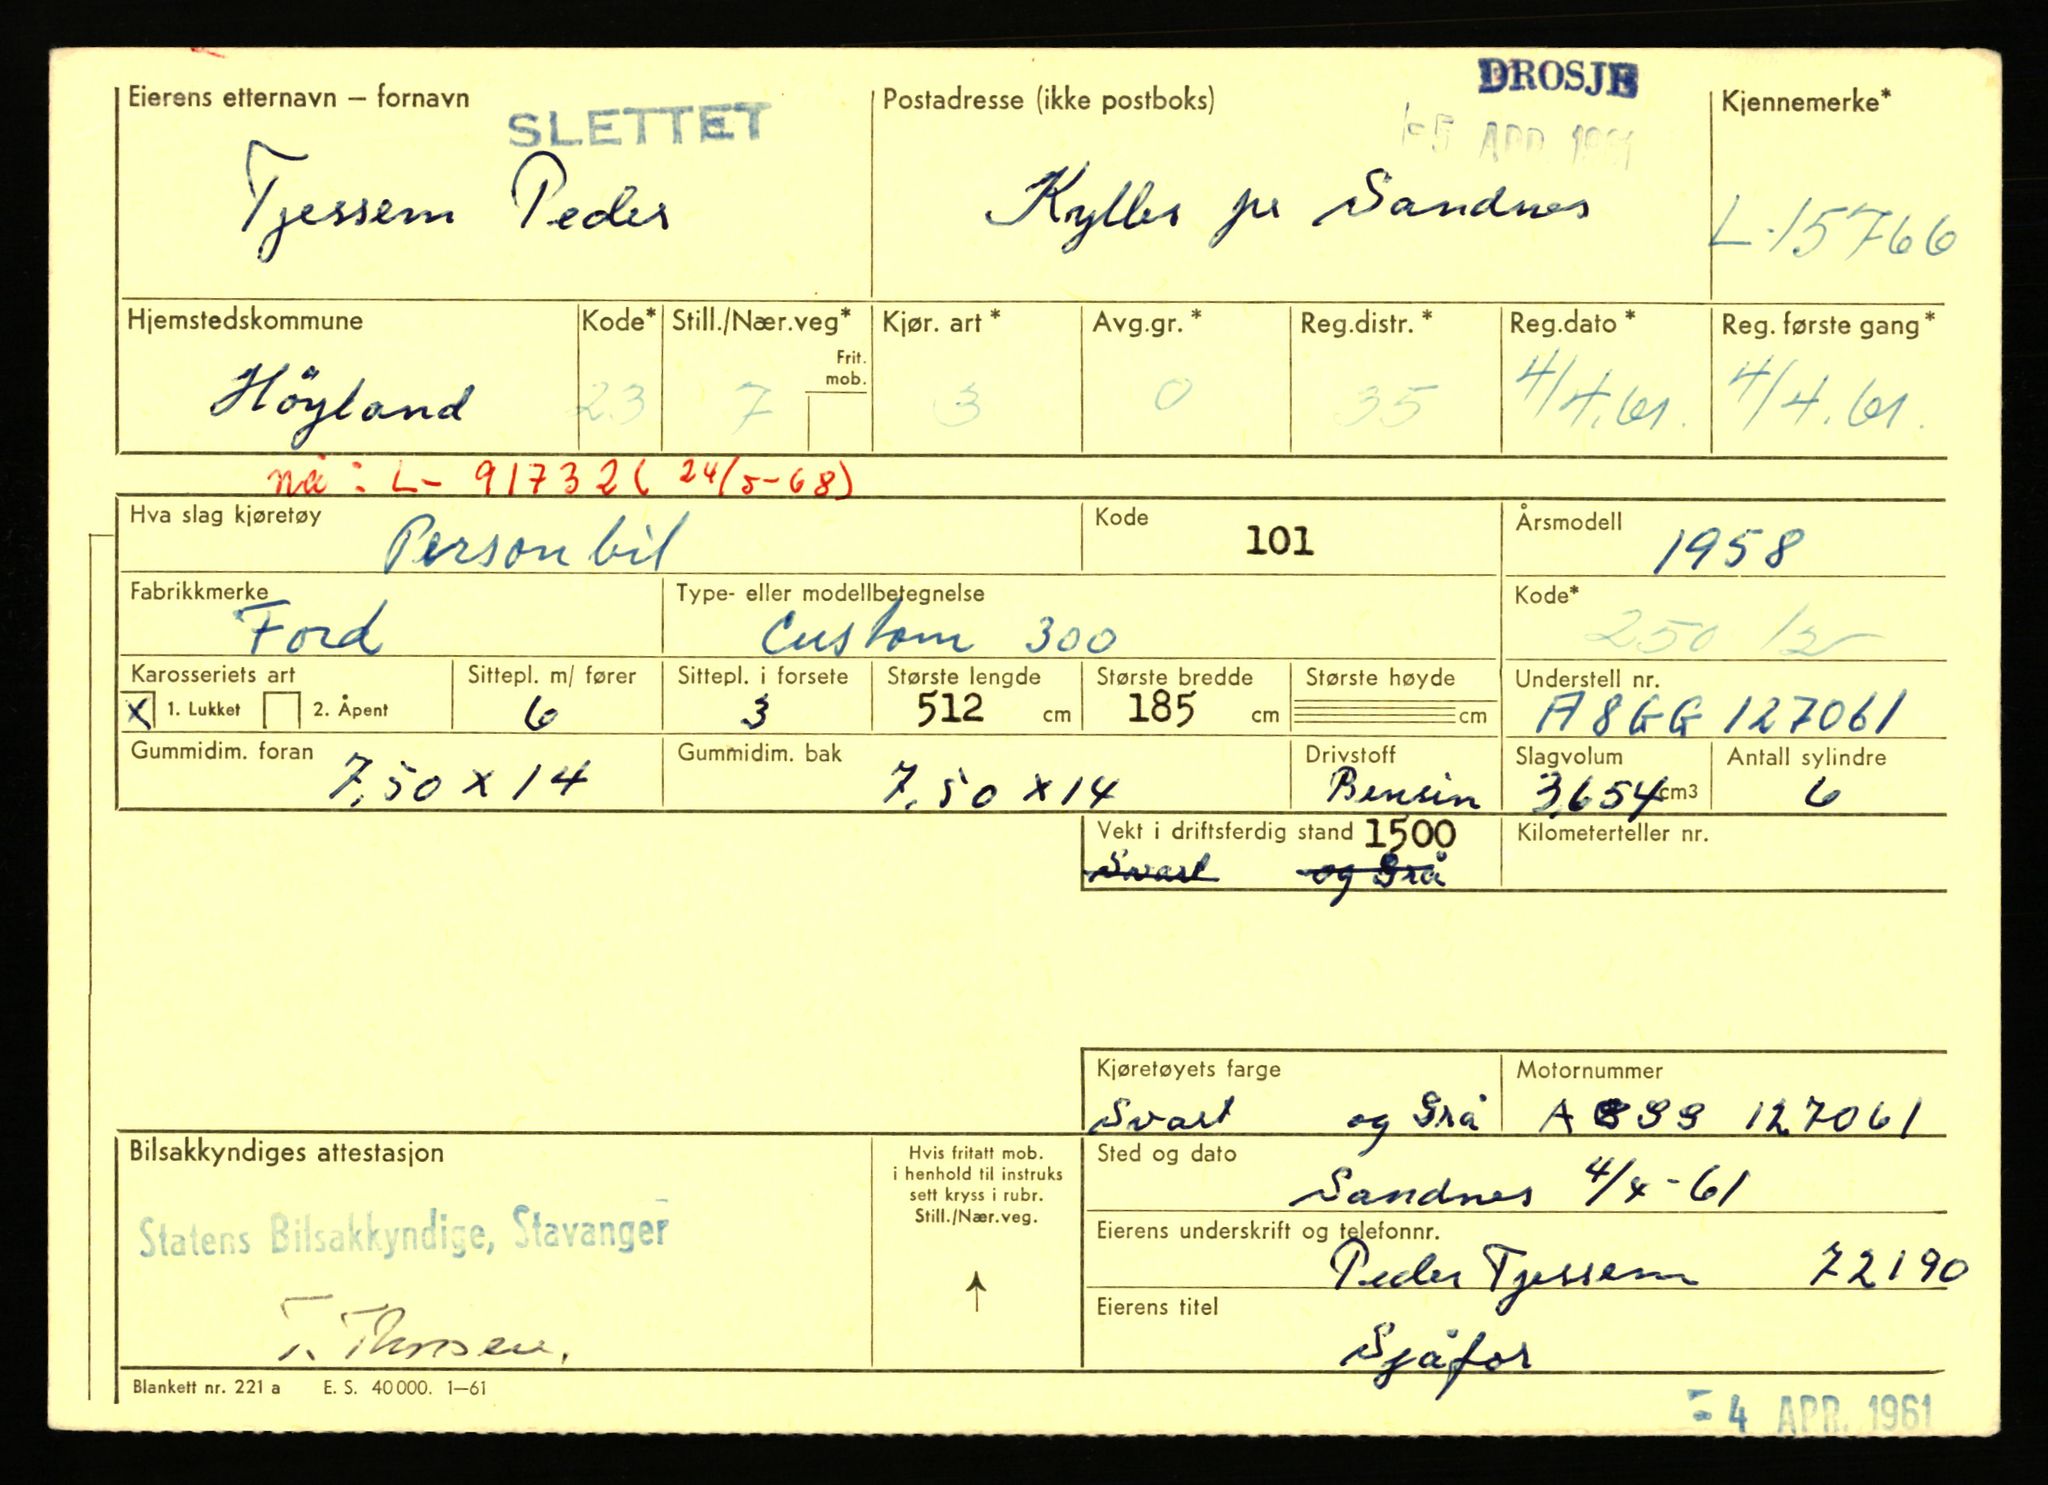 DROSJE
Eierens etternavn – fornavn SLETTET Postadresse (ikke postboks) -5 APR. 1961 Kjennemerke*
Tjessem Peder Kylles pr Sandnes L-15766
Hjemstedskommune Kode* Still./Nær.veg* Kjør. art* Avg.gr.* Reg.distr.* Reg.dato* Reg. første gang*
Frit.
mob.
Höyland 23 7 3 0 35 4/4.61. 4/4.61.
nå: L- 91732 (24/5-68)
Hva slag kjøretøy Personbil Kode 101 Årsmodell 1958
Fabrikkmerke Type- eller modellbetegnelse Kode*
Ford Custom 300 250
Karosseriets art Sittepl. m/ fører Sittepl. i forsete Største lengde Største bredde Største høyde Understell nr.
X 1. Lukket 2. Åpent 6 3 512 cm 185 cm cm A8GG 127061
Gummidim. foran Gummidim. bak Drivstoff Slagvolum Antall sylindre
7,50 x 14 7,50 x 14 Bensin 3654 cm3 6
Vekt i driftsferdig stand 1500 Kilometerteller nr.
Svart og Grå
Kjøretøyets farge Motornummer
Svart og Grå A8GG 127061
Bilsakkyndiges attestasjon Hvis fritatt mob. Sted og dato
i henhold til instruks
sett kryss i rubr.
Still./Nær.veg.
Sandnes 4/4-61
Statens Bilsakkyndige, Stavanger
Eierens underskrift og telefonnr.
Peder Tjessem 72190
↑
Eierens titel
Sjåfør
Blankett nr. 221 a E. S. 40000. 1–61
-4 APR. 1961